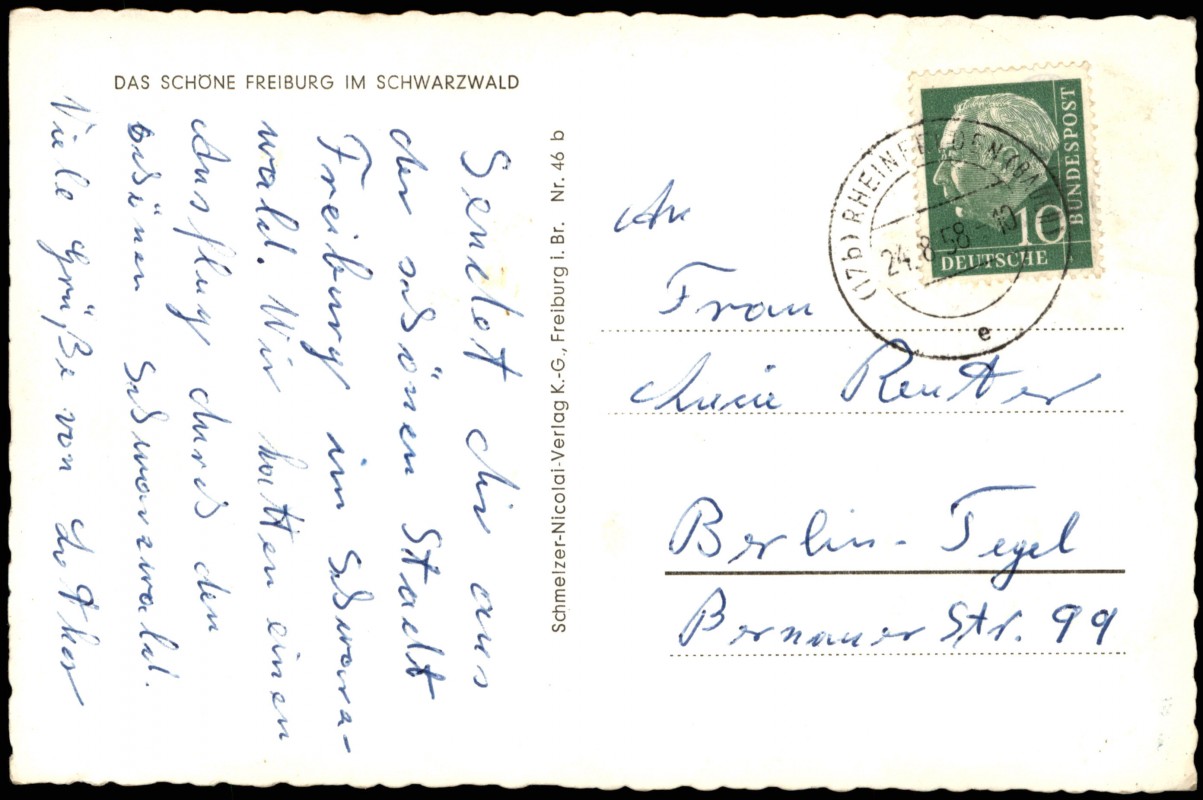 DAS SCHÖNE FREIBURG IM SCHWARZWALD
Sendet dir aus
der schönen Stadt
Freiburg im Schwarz-
wald. Wir hatten einen
Ausflug durch den
schönen Schwarzwald.
Viele Grüße von
Schmelzer-Nicolai-Verlag K.-G., Freiburg i. Br. Nr. 46 b
(17b) RHEINFELDEN (BADEN)
24.8.58 - 10
e
BUNDESPOST
10
DEUTSCHE
An
Frau
Lucie Reutter
Berlin-Tegel
Bernauer Str. 99